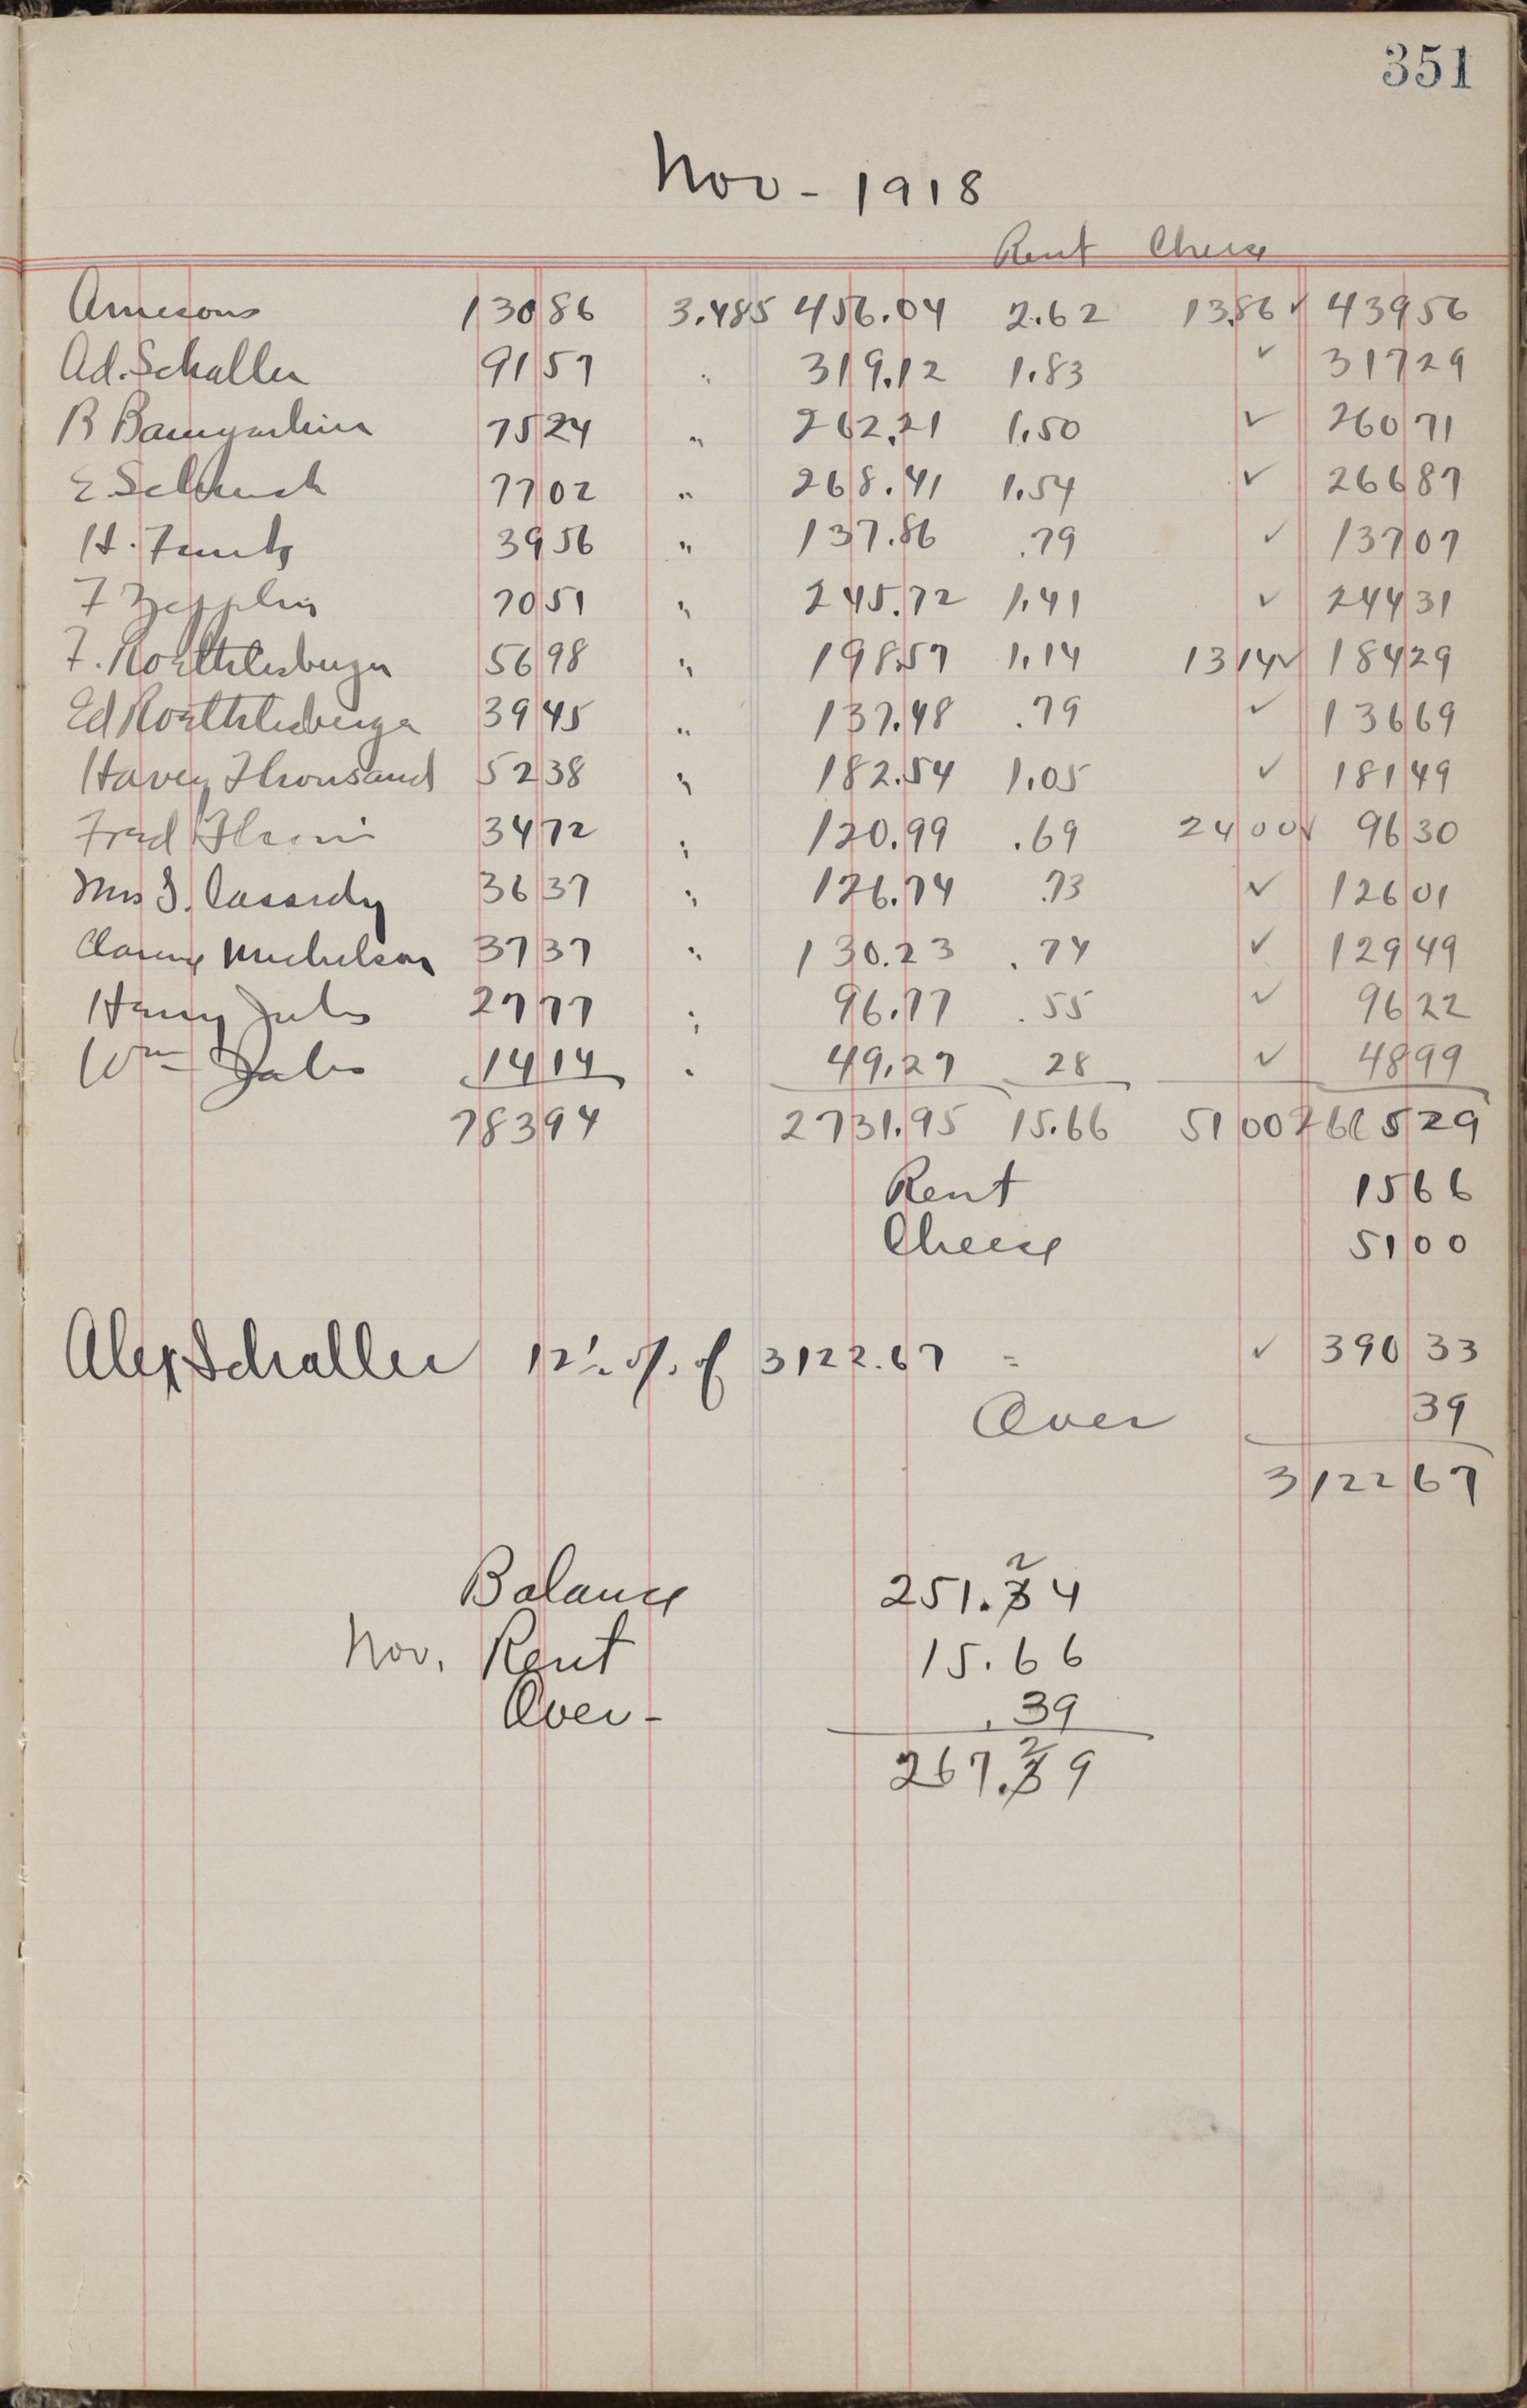 351
Nov - 1918
Rent Cheese
Arnesons 13086 3.485 456.04 2.62 13.86 ✓ 439 56
Ad. Schaller 9157 " 319.12 1.83 ✓ 317 29
B Baumgartner 7524 " 262.21 1.50 ✓ 260 71
E. Schunk 7702 " 268.41 1.54 ✓ 266 87
H. 3956 " 137.86 .79 ✓ 137 07
F Zepplin 7051 " 245.72 1.41 ✓ 244 31
F. Roethlisberger 5698 " 198.57 1.14 13 14 ✓ 184 29
Ed Roethlisberger 3945 " 137.48 .79 ✓ 136 69
Harvey Thousand 5238 " 182.54 1.05 ✓ 181 49
Fred 3472 " 120.99 .69 24 00 ✓ 96 30
Mrs J. Cassidy 3637 " 126.74 .73 ✓ 126 01
Michelson 3737 " 130.23 .74 ✓ 129 49
Harry Jules 2777 " 96.77 .55 ✓ 96 22
Wm Jules 1414 " 49.27 28 ✓ 48 99
78394 2731.95 15.66 51 00 2665 29
Rent 15 66
Cheese 51 00
Alex Schaller 12½ % of 3122.67 = ✓ 390 33
Over 39
3122 67
Balance 251.24
Nov. Rent 15.66
Over - .39
267.29